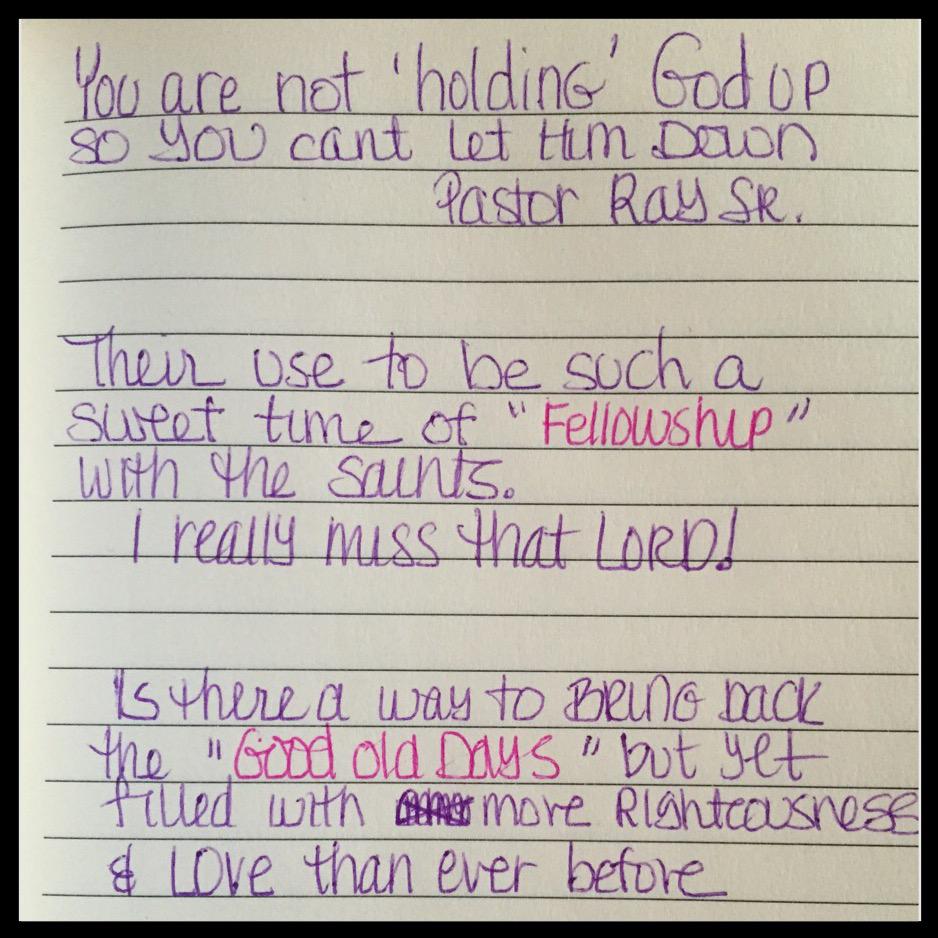 You are not 'holding' God up
so you cant let Him Down
Pastor Ray Sr.
Their use to be such a
sweet time of "Fellowship"
with the saints.
I really miss that LORD!
Is there a way to Bring back
the "Good old Days" but yet
filled with more Righteousness
& Love than ever before